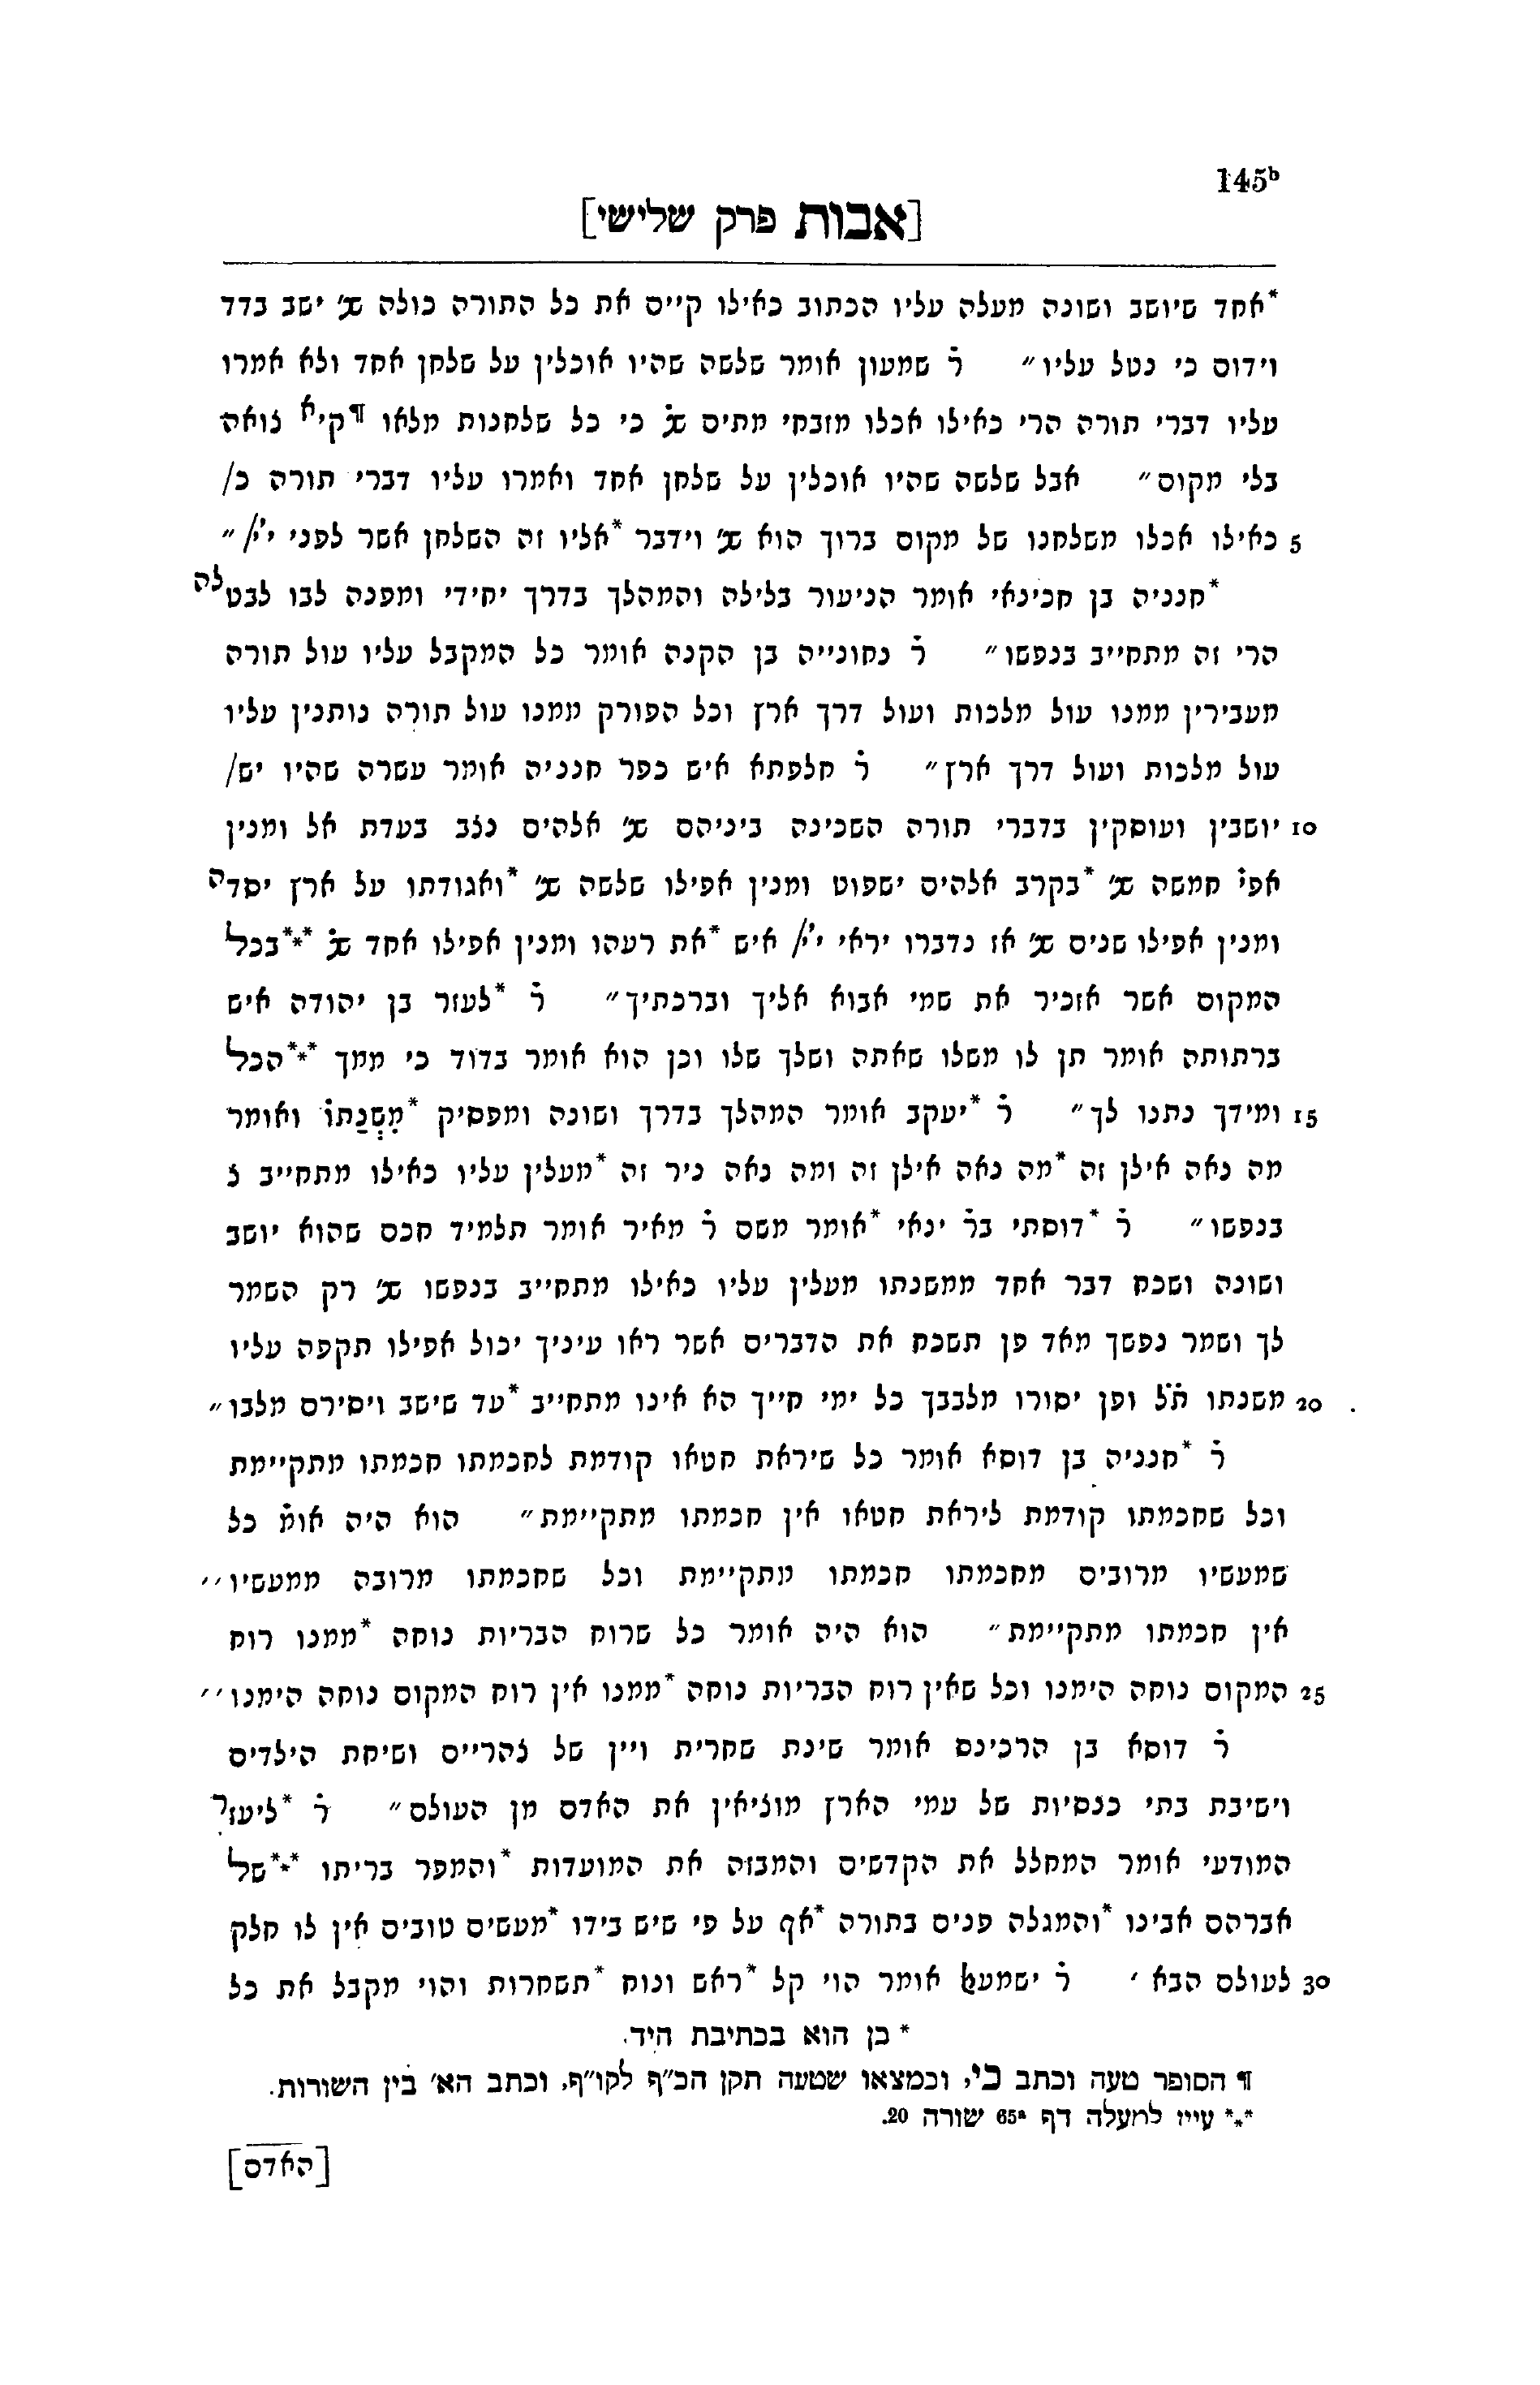 145b
[אבות פרק שלישי]
*אחד שיושב ושונה מעלה עליו הכתוב כאילו קיים את כל התורה כולה שנ׳ ישב בדד
וידום כי נטל עליו״ ר̇ שמעון אומר שלשה שהיו אוכלין על שלחן אחד ולא אמרו
עליו דברי תורה הרי כאילו אכלו מזבחי מתים שנ̇ כי כל שלחנות מלאו ¶קיא צואה
בלי מקום״ אבל שלשה שהיו אוכלין על שלחן אחד ואמרו עליו דברי תורה כ/
5 כאילו אכלו משלחנו של מקום ברוך הוא שנ׳ וידבר *אליו זה השלחן אשר לפני ייי/ ״
*חנניה בן חכינאי אומר הניעור בלילה והמהלך בדרך יחידי ומפנה לבו לבטלה
הרי זה מתחייב בנפשו״ ר̇ נחונייה בן הקנה אומר כל המקבל עליו עול תורה
מעבירין ממנו עול מלכות ועול דרך ארץ וכל הפורק ממנו עול תורה נותנין עליו
עול מלכות ועול דרך ארץ״ ר̇ חלפתא איש כפר חנניה אומר עשרה שהיו יש/
10 יושבין ועוסקין בדברי תורה השכינה ביניהם שנ׳ אלהים נצב בעדת אל ומנין
אפי̇ חמשה שנ׳ *בקרב אלהים ישפוט ומנין אפילו שלשה שנ׳ *ואגודתו על ארץ יסדה
ומנין אפילו שנים שנ׳ אז נדברו יראי ייי/ איש *את רעהו ומנין אפילו אחד שנ̇ ***בכל
המקום אשר אזכיר את שמי אבוא אליך וברכתיך״ ר̇ *לעזר בן יהודה איש
ברתותה אומר תן לו משלו שאתה ושלך שלו וכן הוא אומר בדוד כי ממך ***הכל
15 ומידך נתנו לך״ ר̇ *יעקב אומר המהלך בדרך ושונה ומפסיק *מִשְנַתוֹ ואומר
מה נאה אילן זה *מה נאה אילן זה ומה נאה ניר זה *מעלין עליו כאילו מתחייב נ
בנפשו״ ר̇ *דוסתי בר̇ ינאי *אומר משם ר̇ מאיר אומר תלמיד חכם שהוא יושב
ושונה ושכח דבר אחד ממשנתו מעלין עליו כאילו מתחייב בנפשו שנ׳ רק השמר
לך ושמר נפשך מאד פן תשכח את הדברים אשר ראו עיניך יכול אפילו תקפה עליו
20 משנתו ת̇ל̇ ופן יסורו מלבבך כל ימי חייך הא אינו מתחייב *עד שישב ויסירם מלבו״
ר̇ *חנניה בן דוסא אומר כל שיראת חטאו קודמת לחכמתו חכמתו מתקיימת
וכל שחכמתו קודמת ליראת חטאו אין חכמתו מתקיימת״ הוא היה אומ̇ כל
שמעשיו מרובים מחכמתו חכמתו מתקיימת וכל שחכמתו מרובה ממעשיו׳׳
אין חכמתו מתקיימת״ הוא היה אומר כל שרוח הבריות נוחה *ממנו רוח
25 המקום נוחה הימנו וכל שאין רוח הבריות נוחה *ממנו אין רוח המקום נוחה הימנו׳׳
ר̇ דוסא בן הרכינס אומר שינת שחרית ויין של צהריים ושיחת הילדים
וישיבת בתי כנסיות של עמי הארץ מוציאין את האדם מן העולם״ ר̇ *ליעזר
המודעי אומר המחלל את הקדשים והמבזה את המועדות *והמפר בריתו ***של
אברהם אבינו *והמגלה פנים בתורה *אף על פי שיש בידו *מעשים טובים אין לו חלק
30 לעולם הבא ׳ ר̇ ישמעאל אומר הוי קל *ראש ונוח *תשחרות והוי מקבל את כל
* כן הוא בכתיבת היד.
¶ הסופר טעה וכתב כי, וכמצאו שטעה תקן הכ״ף לקו״ף, וכתב הא׳ בין השורות.
*** עיין למעלה דף 65a שורה 20.
[האדם]